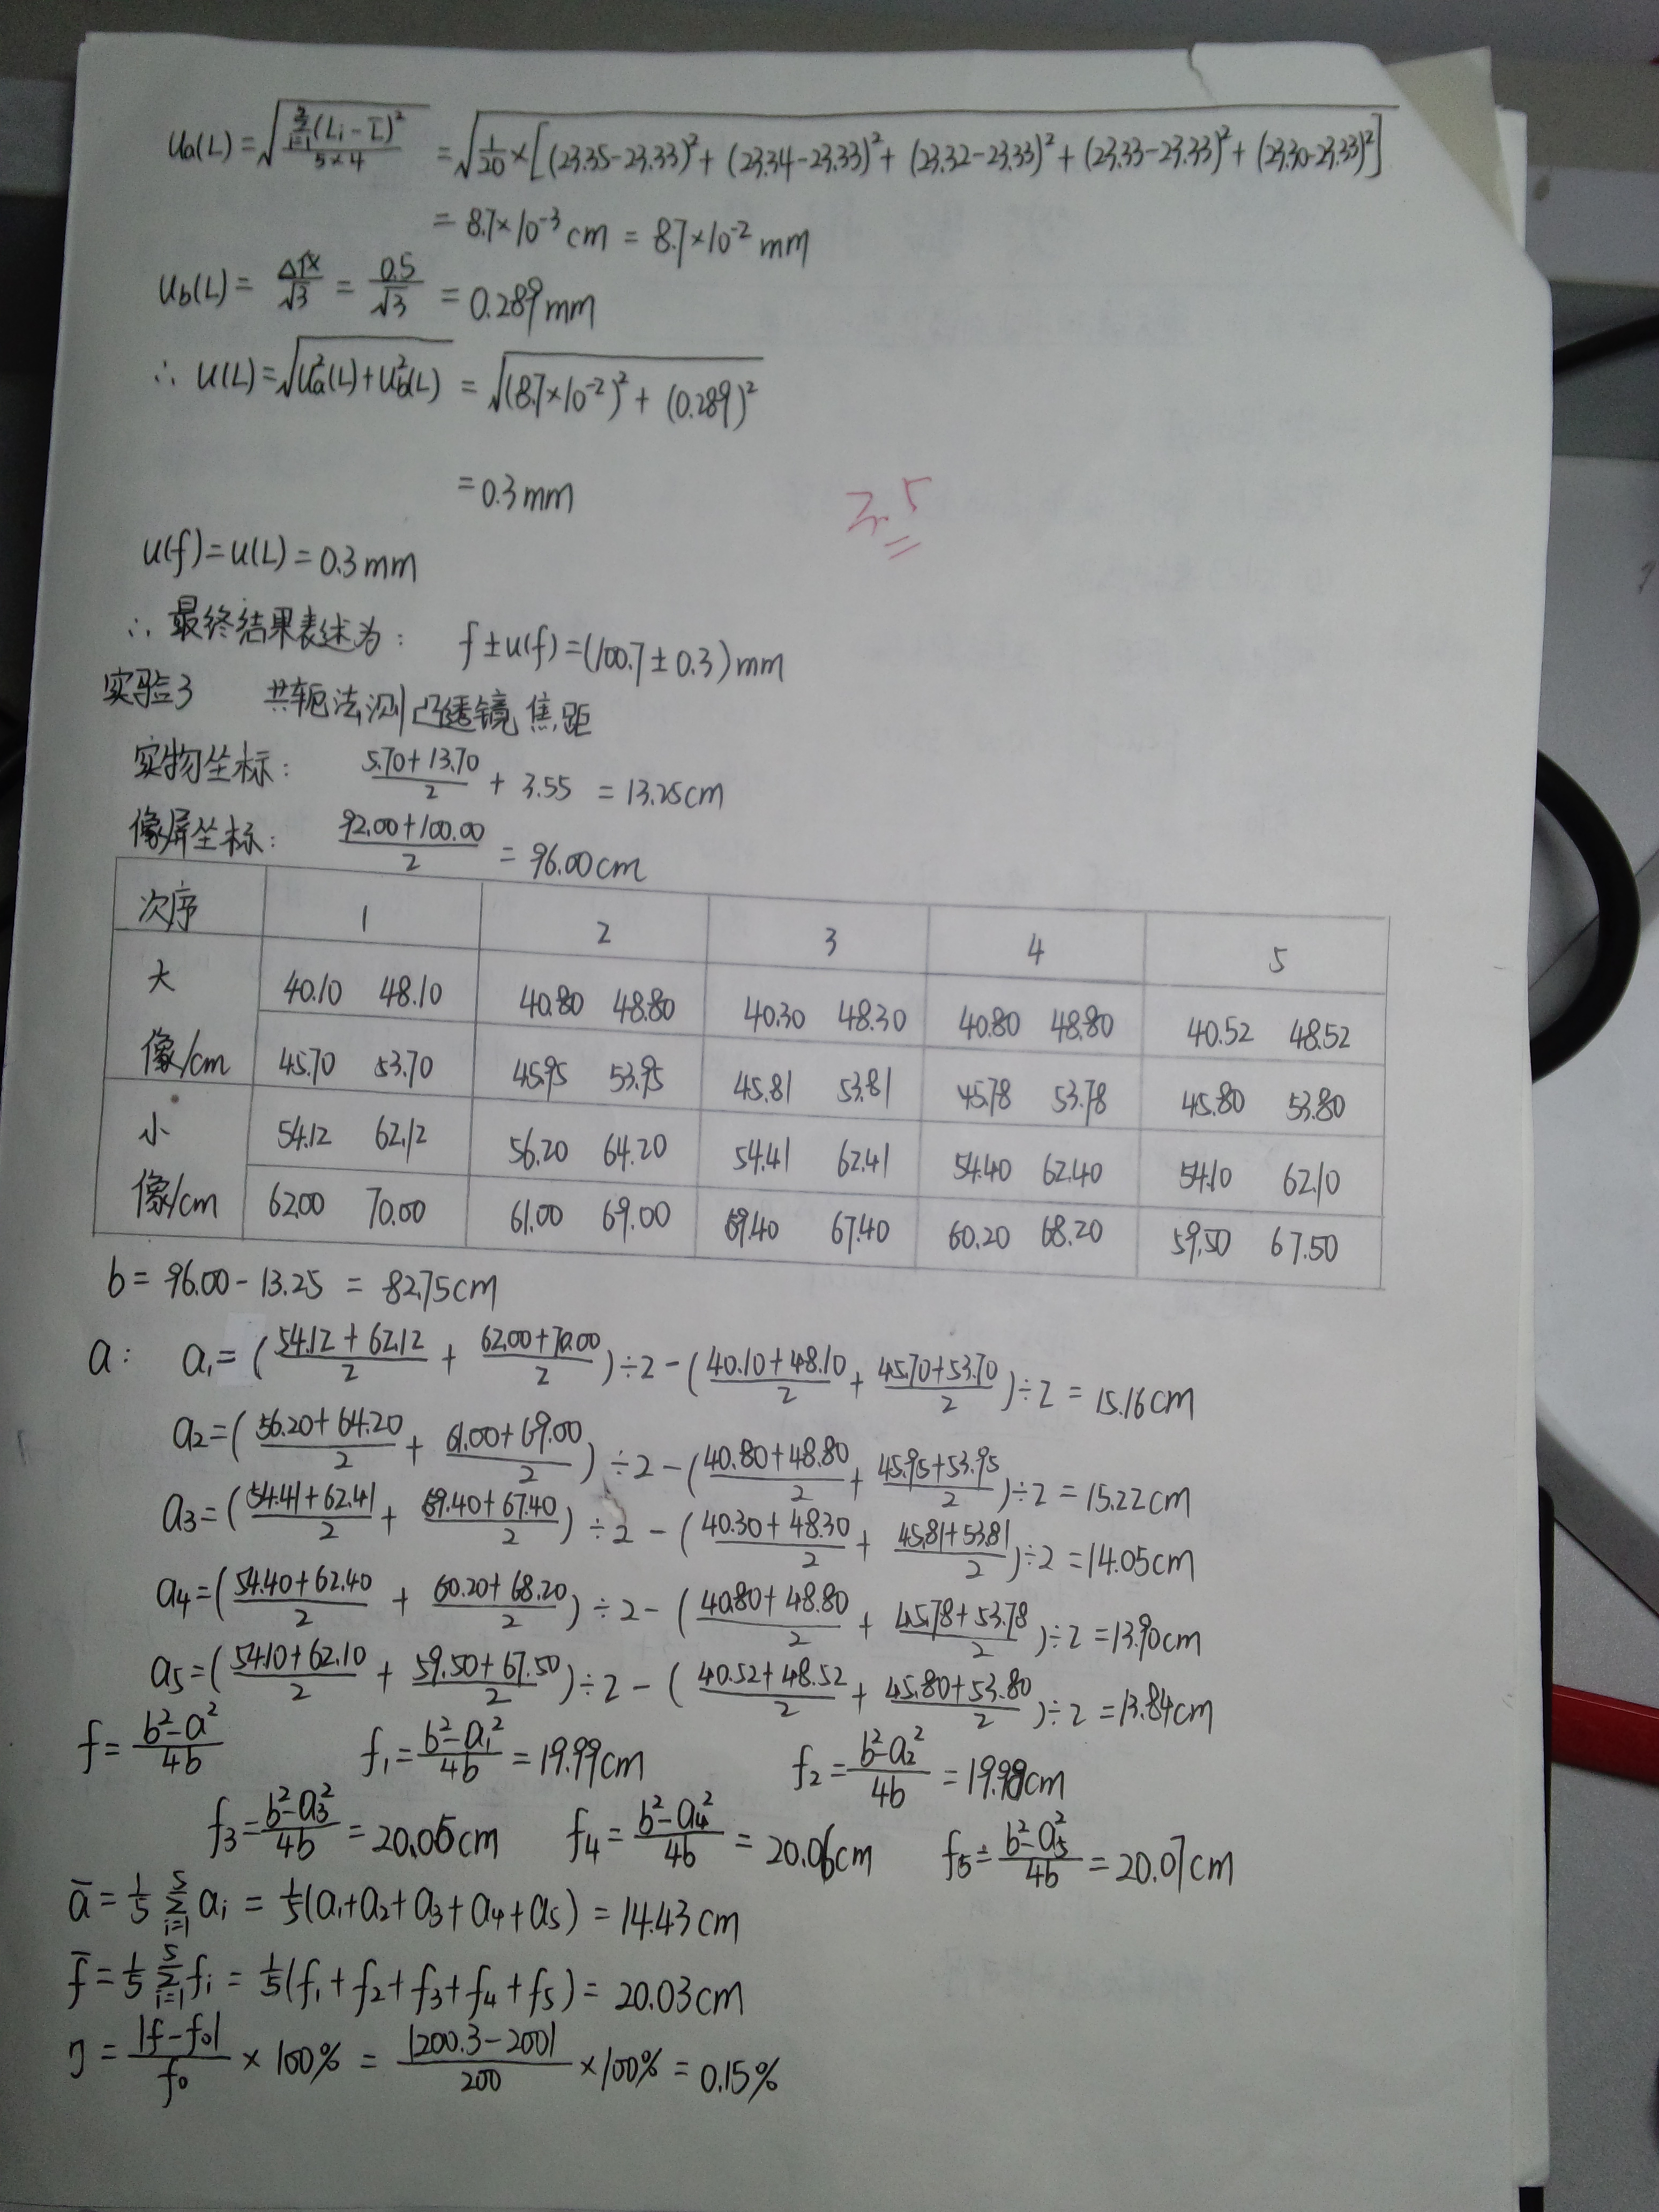 Ua(L)=√(∑i=1(Li-L̄)²/5×4) = √(1/20×[(23.35-23.33)²+(23.34-23.33)²+(23.32-23.33)²+(23.33-23.33)²+(23.30-23.33)²])
= 8.7×10⁻³cm = 8.7×10⁻²mm
Ub(L)= Δ仪/√3 = 0.5/√3 = 0.289mm
∴ U(L)=√(Ua²(L)+Ub²(L)) = √((8.7×10⁻²)²+(0.289)²)
=0.3mm
U(f)=U(L)=0.3mm
∴ 最终结果表述为: f±u(f)=(100.7±0.3)mm
实验3 共轭法测凸透镜焦距
实物坐标: (5.70+13.70)/2 + 3.55 = 13.25cm
像屏坐标: (92.00+100.00)/2 = 96.00cm
次序 1 2 3 4 5
大 40.10 48.10 40.80 48.80 40.30 48.30 40.80 48.80 40.52 48.52
像/cm 45.70 53.70 45.95 53.95 45.81 53.81 45.78 53.78 45.80 53.80
小 54.12 62.12 56.20 64.20 54.41 62.41 54.40 62.40 54.10 62.10
像/cm 62.00 70.00 61.00 69.00 67.40 60.20 68.20 59.50 67.50
b = 96.00-13.25 = 82.75cm
a: a₁=((54.12+62.12)/2 + (62.00+70.00)/2)÷2-((40.10+48.10)/2+(45.70+53.70)/2)÷2 = 15.16cm
a₂=((56.20+64.20)/2 + (61.00+69.00)/2)÷2-((40.80+48.80)/2+(45.95+53.95)/2)÷2 = 15.22cm
a₃=((54.41+62.41)/2 + (+67.40)/2)÷2-((40.30+48.30)/2+(45.81+53.81)/2)÷2 = 14.05cm
a₄=((54.40+62.40)/2 + (60.20+68.20)/2)÷2-((40.80+48.80)/2+(45.78+53.78)/2)÷2 = 13.90cm
a₅=((54.10+62.10)/2 + (59.50+67.50)/2)÷2-((40.52+48.52)/2+(45.80+53.80)/2)÷2 = 13.84cm
f=(b²-a²)/4b f₁=(b²-a₁²)/4b=19.99cm f₂=(b²-a₂²)/4b=19.98cm
f₃=(b²-a₃²)/4b=20.05cm f₄=(b²-a₄²)/4b=20.06cm f₅=(b²-a₅²)/4b=20.07cm
ā=1/5 ∑i=1⁵ ai = 1/5(a₁+a₂+a₃+a₄+a₅)=14.43cm
f̄=1/5 ∑i=1⁵ fi = 1/5(f₁+f₂+f₃+f₄+f₅)=20.03cm
η=|f-f₀|/f₀×100% = |200.3-200|/200×100% = 0.15%